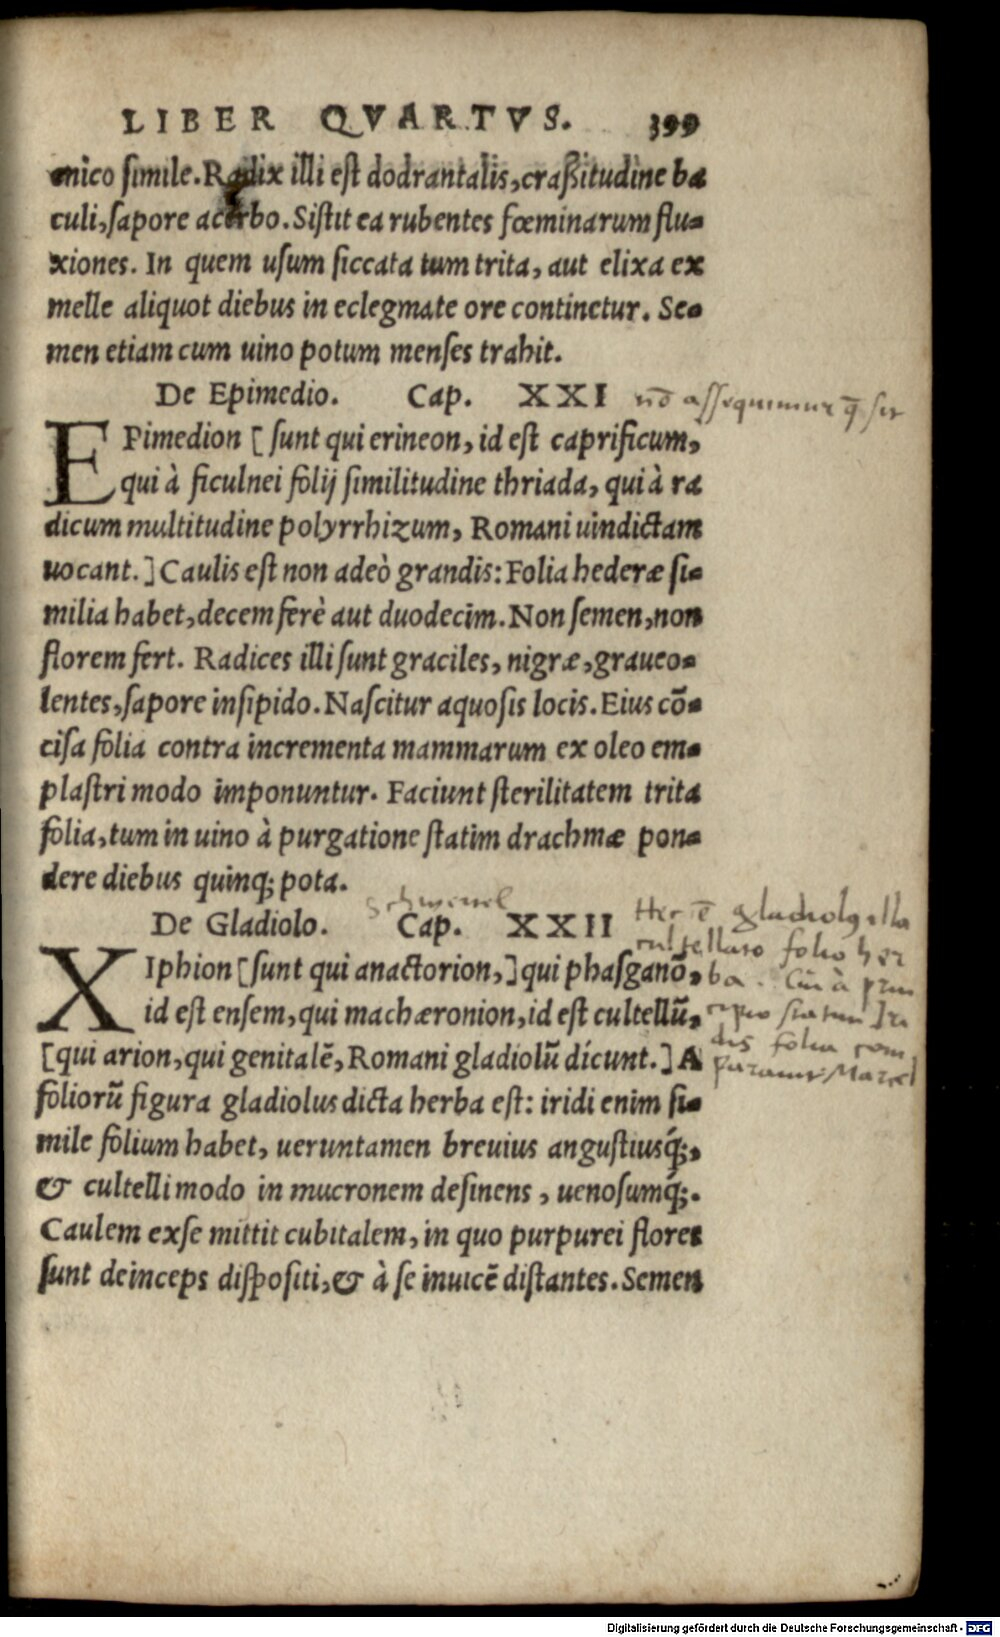 LIBER QVARTVS. 399
enico ſimile. Radix illi eſt dodrantalis, craßitudine ba
culi, ſapore acerbo. Siſtit ea rubentes fœminarum flu-
xiones. In quem uſum ſiccata tum trita, aut elixa ex
melle aliquot diebus in eclegmate ore continetur. Se-
men etiam cum uino potum menſes trahit.
De Epimedio. Cap. XXI nō assequimur q̄ sit
EPimedion [ ſunt qui erineon, id eſt caprificum,
qui à ficulnei folij ſimilitudine thriada, qui à ra
dicum multitudine polyrrhizum, Romani uindictam
uocant.] Caulis eſt non adeò grandis: Folia hederæ ſi-
milia habet, decem ferè aut duodecim. Non ſemen, non
florem fert. Radices illi ſunt graciles, nigræ, graueo-
lentes, ſapore inſipido. Naſcitur aquoſis locis. Eius cō-
ciſa folia contra incrementa mammarum ex oleo em-
plaſtri modo imponuntur. Faciunt ſterilitatem trita
folia, tum in uino à purgatione ſtatim drachmæ pon-
dere diebus quinq; pota.
De Gladiolo. Cap. XXII
XIphion [ſunt qui anactorion,] qui phaſganō,
id eſt enſem, qui machæronion, id eſt cultellū,
[qui arion, qui genitalē, Romani gladiolū dicunt.] A
foliorū figura gladiolus dicta herba eſt: iridi enim ſi-
mile folium habet, ueruntamen breuius anguſtiusq́;,
& cultelli modo in mucronem deſinens, uenoſumq́;.
Caulem exſe mittit cubitalem, in quo purpurei flores
ſunt deinceps diſpoſiti, & à ſe inuicē diſtantes. Semen
Her ē gladiolus illa
cultellato folio her
ba. Cui à prin
cipio statim Iri
dis folia com
paramus Marcel
Digitalisierung gefördert durch die Deutsche Forschungsgemeinschaft - DFG